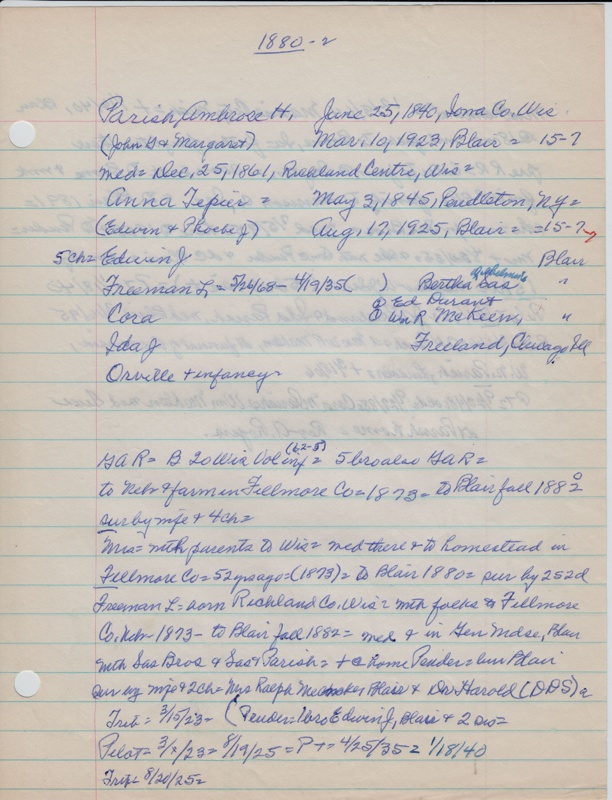 1880-2
Parish, Ambrose H. June 25, 1840, Iowa Co. Wis
(John G & Margaret) Mar. 10, 1923, Blair = 15-7
med = Dec. 25, 1861, Richland Centre, Wis =
Anna Tepier = May 3, 1845, Pendleton, NY =
(Edwin & Phoebe J) Aug. 17, 1925, Blair = = 15-7
5 ch = Edwin J Blair
Freeman L = 5/24/68 - 4/19/35 ( ) Bertha Wilhelmina Sas "
Cora Ed Durant
Wm R McKeen, "
Ida J Freeland, Chicago, Ill
Orville & infancy =
GAR = B 20 Wis Vol inf = (62-5) 5 bro also GAR =
to Nebr & farm in Fillmore Co = 1873 = to Blair fall 1882
sur by wife & 4 ch =
Mrs = with parents to Wis = med there & to homestead in
Fillmore Co = 52 yrs ago = (1873) = to Blair 1880 = sur by 2s 2d
Freeman L = born Richland Co. Wis = with folks to Fillmore
Co. Nebr - 1873 - to Blair fall 1882 = med & in Gen Mdse, Blair
with Sas Bros & Sas & Parish = home Pender = bur Blair
sur by wife & 2 ch = Mrs Ralph Blair & Dr. Harold (DDS)
Trib = 3/15/23 = (Pender = bro Edwin J, Blair & 2 sis =
Pilot = 3/ /23 = 8/19/25 = P + = 4/25/35 = 1/18/40
Trib = 8/20/25 =